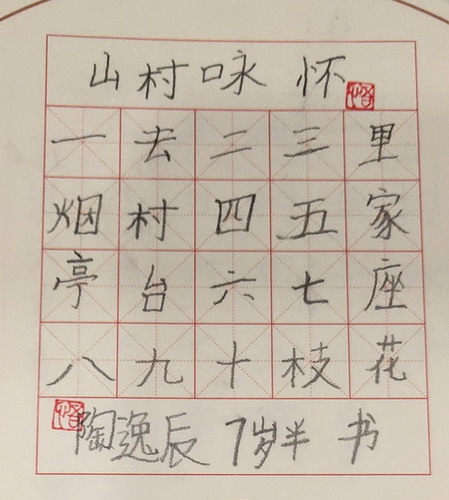 山村咏怀
一去二三里
烟村四五家
亭台六七座
八九十枝花
陶逸辰 7岁半 书